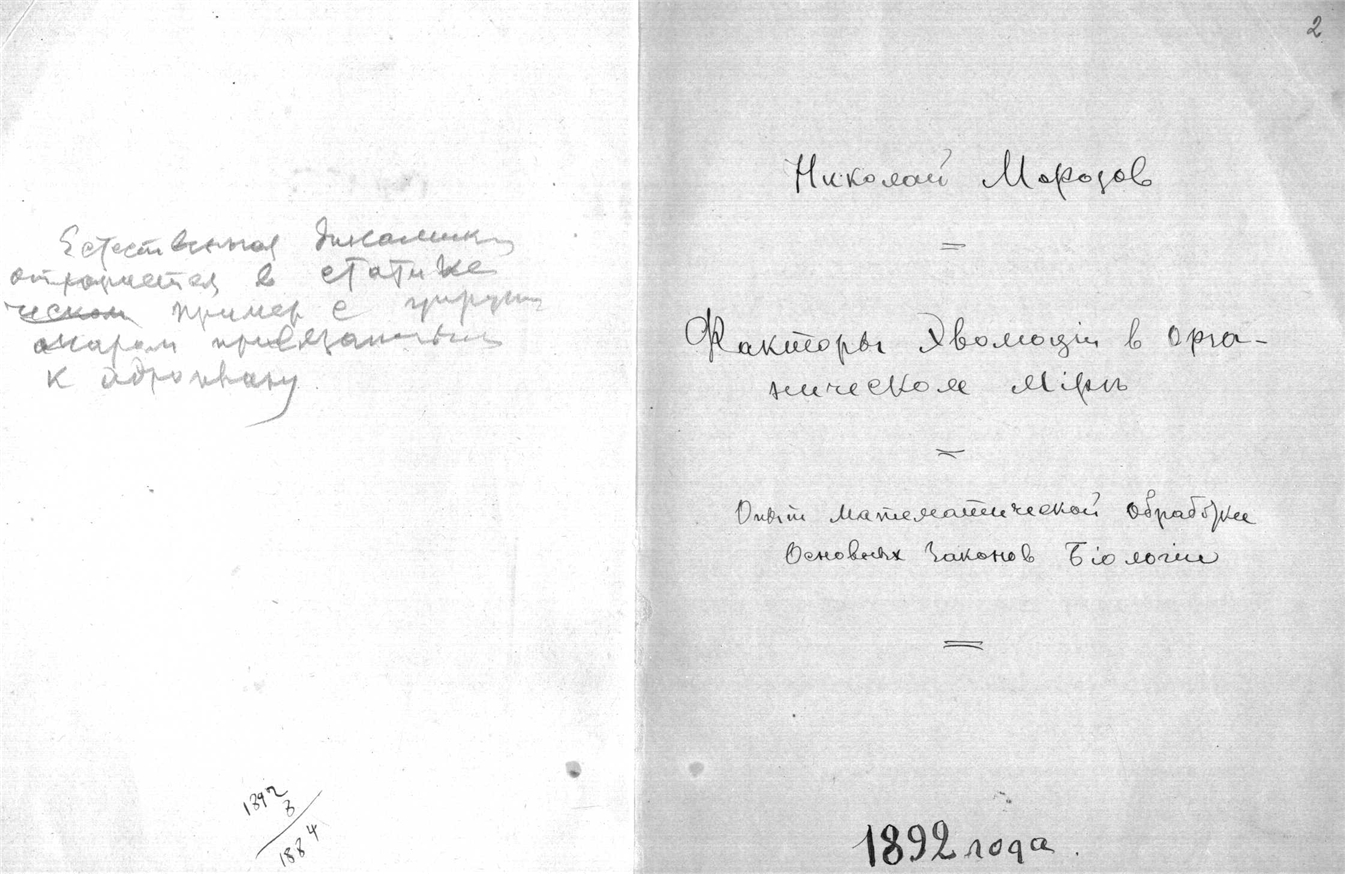 Естественная
в статике
ческом пример с
шаром привязанным
к
1892
8
1884
2
Николай Морозов
Факторы Эволюціи в орга-
ническом Мірѣ
Опыт математической обработки
Основных Законов Біологіи
1892 года.